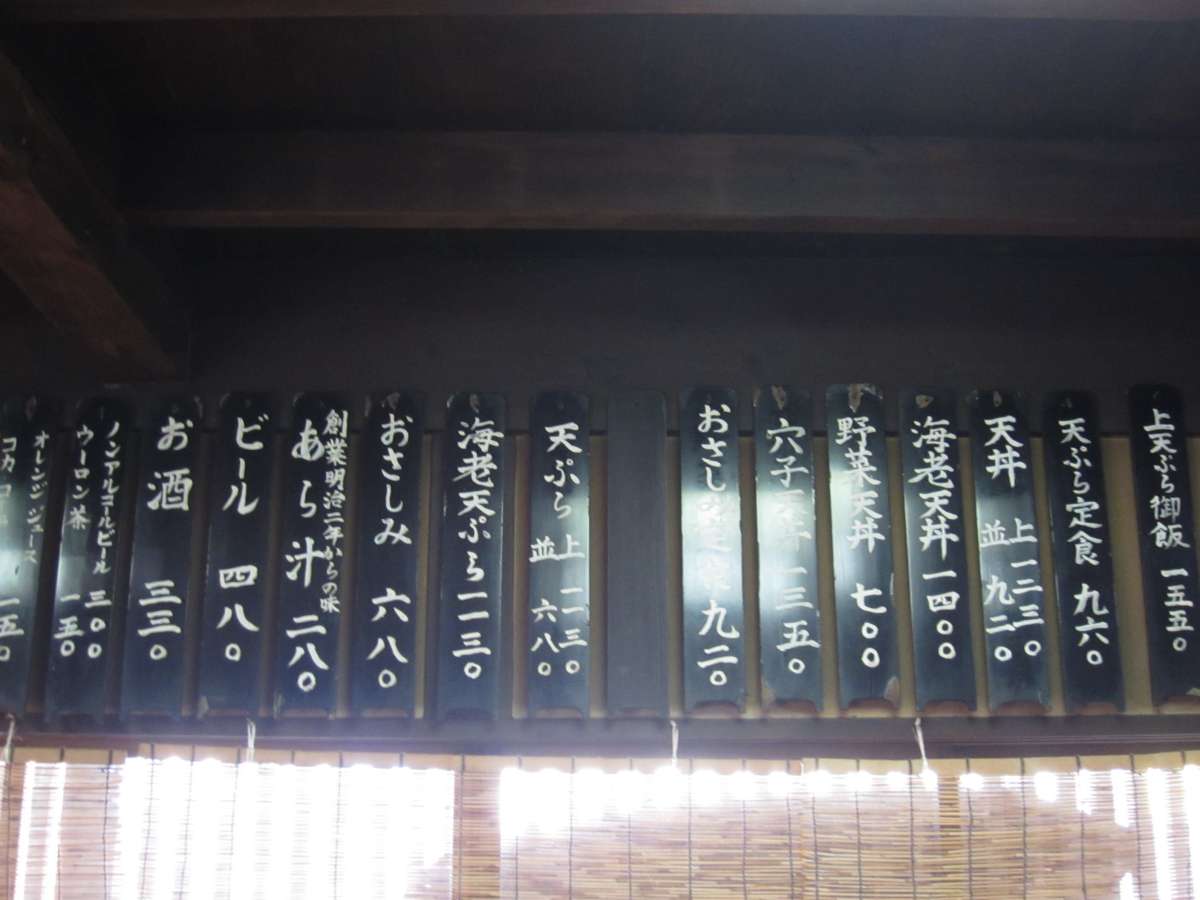 上天ぷら御飯 一五五〇
天ぷら定食 九六〇
天丼 上 一二三〇
並 九二〇
海老天丼 一四〇〇
野菜天丼 七〇〇
穴子天丼 一三五〇
おさしみ定食 九二〇
天ぷら 上 一一三〇
並 六八〇
海老天ぷら 一一三〇
おさしみ 六八〇
創業明治二年からの味
あら汁 二八〇
ビール 四八〇
お酒 三三〇
ノンアルコールビール 三〇〇
ウーロン茶 一五〇
オレンジジュース
コカコーラ 一五〇